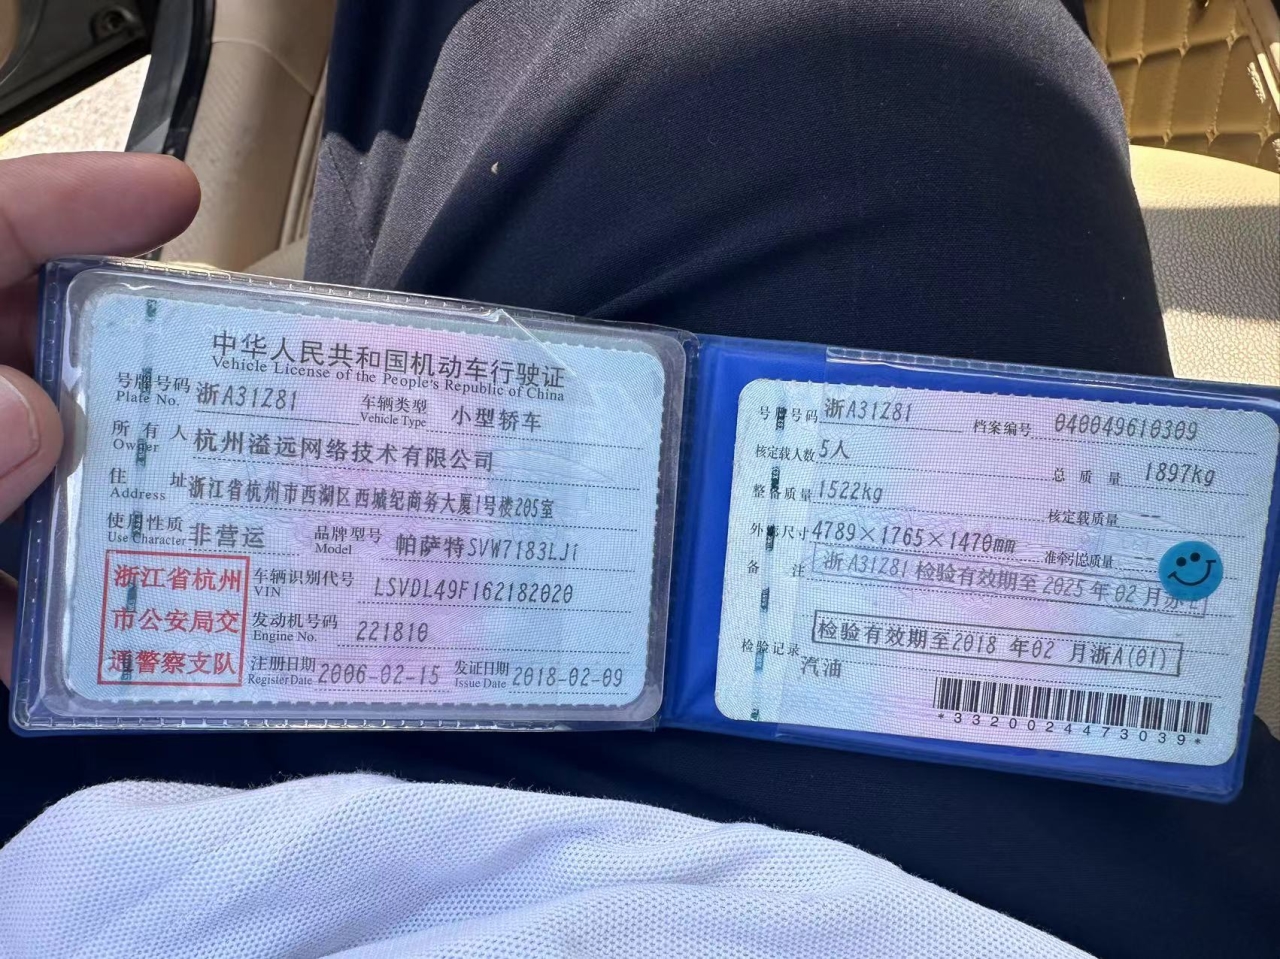 中华人民共和国机动车行驶证
Vehicle License of the People's Republic of China
号牌号码 浙A31Z81 车辆类型 小型轿车
Plate No. Vehicle Type
所有人 杭州溢远网络技术有限公司
Owner
住址 浙江省杭州市西湖区西城纪商务大厦1号楼205室
Address
使用性质 非营运 品牌型号 帕萨特SVW7183LJi
Use Character Model
浙江省杭州
市公安局交
通警察支队
车辆识别代号 LSVDL49F162182020
VIN
发动机号码 221810
Engine No.
注册日期 2006-02-15 发证日期 2018-02-09
Register Date Issue Date
号牌号码 浙A31Z81 档案编号 040049610309
核定载人数 5人 总质量 1897kg
整备质量 1522kg 核定载质量 --
外廓尺寸 4789×1765×1470mm 准牵引总质量 --
备注 浙A31Z81 检验有效期至2025年02月浙
检验有效期至2018年02月浙A(01)
检验记录
汽油
*3320024473039*